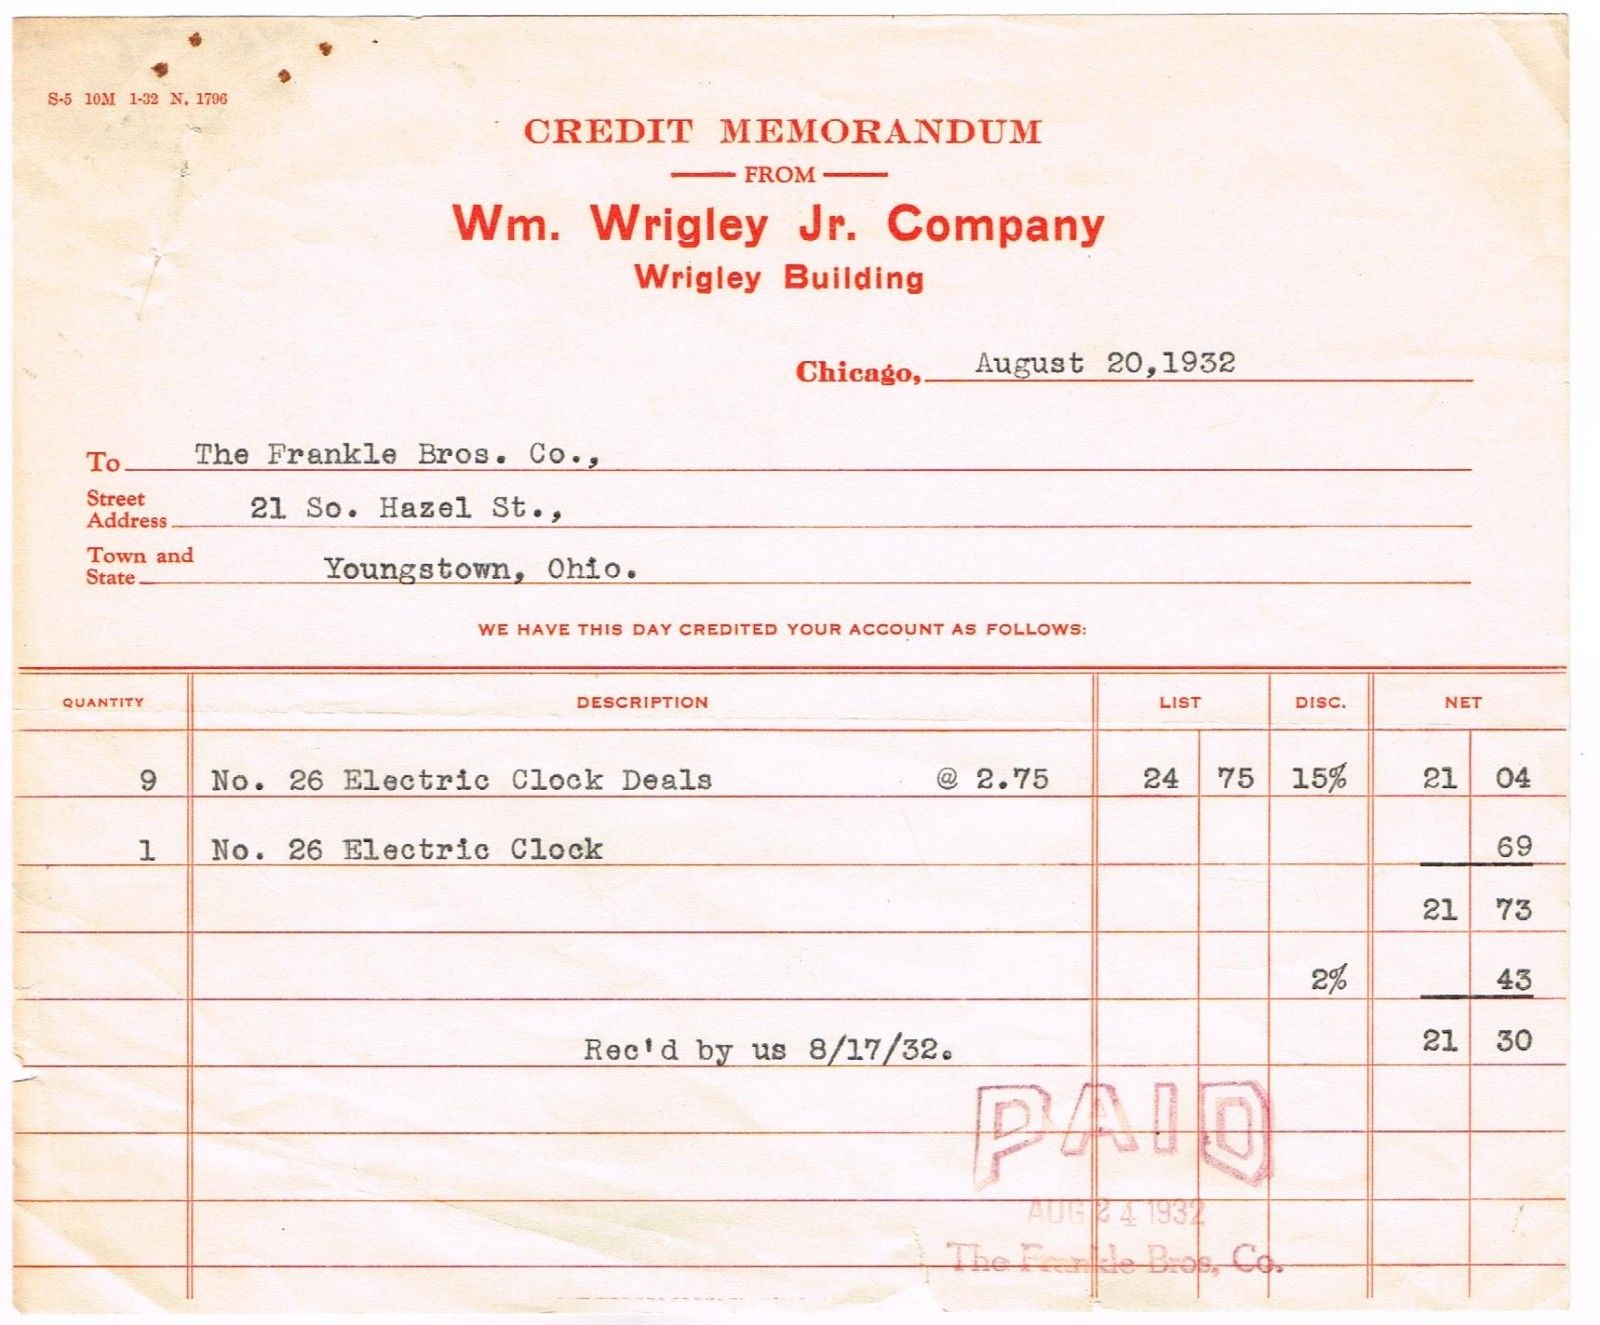 S-5 10M 1-32 N. 1796
CREDIT MEMORANDUM
FROM
Wm. Wrigley Jr. Company
Wrigley Building
Chicago, August 20,1932
To The Frankle Bros. Co.,
Street Address 21 So. Hazel St.,
Town and State Youngstown, Ohio.
WE HAVE THIS DAY CREDITED YOUR ACCOUNT AS FOLLOWS:
QUANTITY DESCRIPTION LIST DISC. NET
9 No. 26 Electric Clock Deals @ 2.75 24 75 15% 21 04
1 No. 26 Electric Clock 69
21 73
2% 43
Rec'd by us 8/17/32. 21 30
PAID
AUG 24 1932
The Frankle Bros, Co.